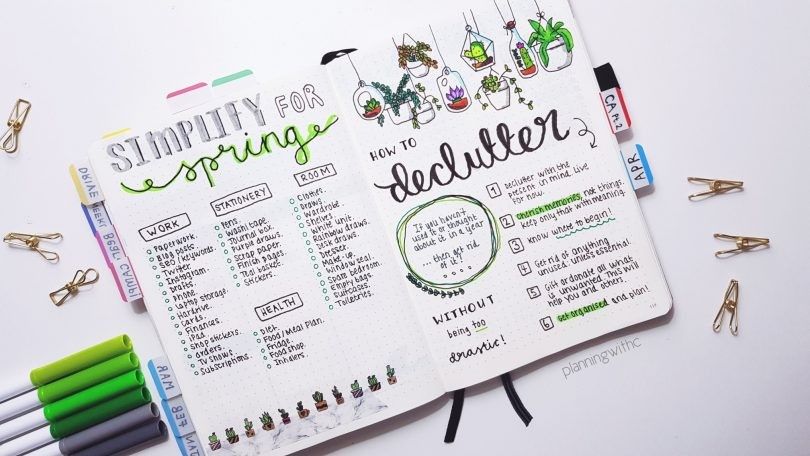 SIMPLIFY FOR
spring
WORK
Paperwork.
Blog posts.
SEO/keywords
Twitter.
Instagram.
Drafts.
Phone.
Laptop storage.
Hardrive.
Cards.
Finances.
iPad.
Shop stickers.
Orders.
TV shows.
Subscriptions.
STATIONERY
Pens.
Washi tape.
Journal box.
Purple draws.
Scrap paper.
Finish pages.
Tool basket.
Stickers.
HEALTH
Diet.
Food/Meal Plan.
Fridge.
Food shop.
Inhalers.
ROOM
Clothes.
Draws.
Wardrobe.
Shelves.
White unit.
Rainbow draws.
Desk draws.
Dresser.
Make-up.
Window seal.
Spare bedroom.
Empty bags.
Suitcases.
Toiletries.
HOW TO
declutter
If you haven't
used it or thought
about it in a year
...then get rid
of it!
WITHOUT
being too
drastic!
1 Declutter with the
present in mind. Live
for now.
2 Cherish memories, not things.
Keep only that with meaning.
3 Know where to begin!
4 Get rid of anything
unused, unless essential.
5 Gift or donate all what
is unwanted. This will
help you and others.
6 Get organised and plan!
CA Pt.2
APR
DRIVE
MAR
FEB
planningwithc